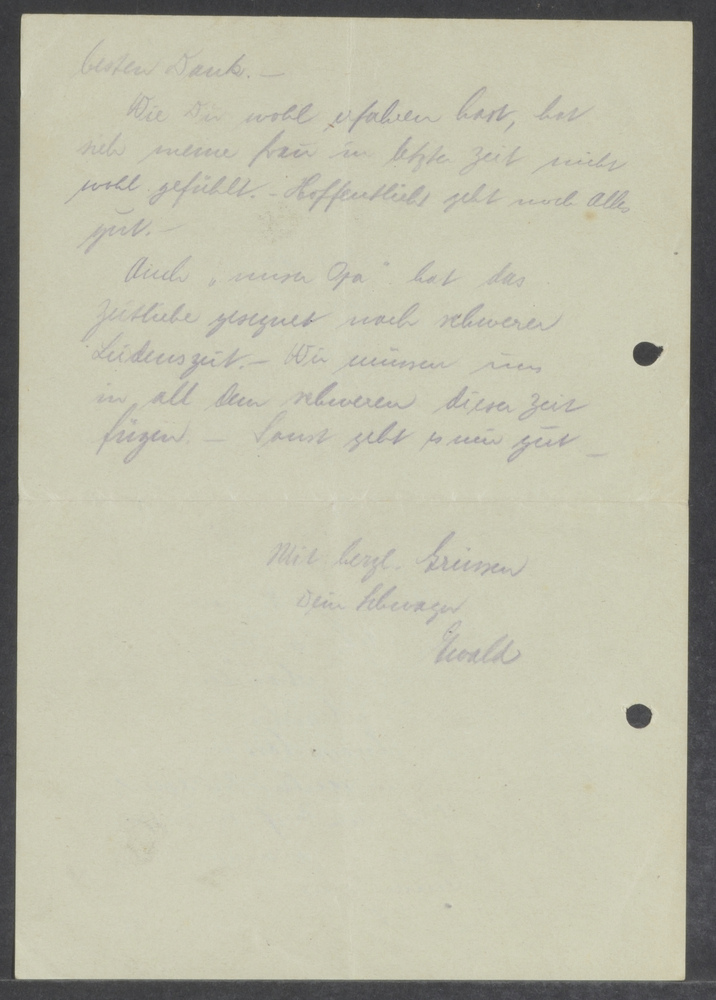 besten Dank. –
Wie Du wohl erfahren hast, hat
sich meine Frau in letzter Zeit nicht
wohl gefühlt. – Hoffentlich geht noch Alles
gut. –
Auch „unser Opa" hat das
Zeitliche gesegnet nach schwerer
Leidenszeit. – Wir müssen uns
in all dem schweren dieser Zeit
fügen. – Sonst geht es mir gut –
Mit herzl. Grüssen
Dein Schwager
Ewald